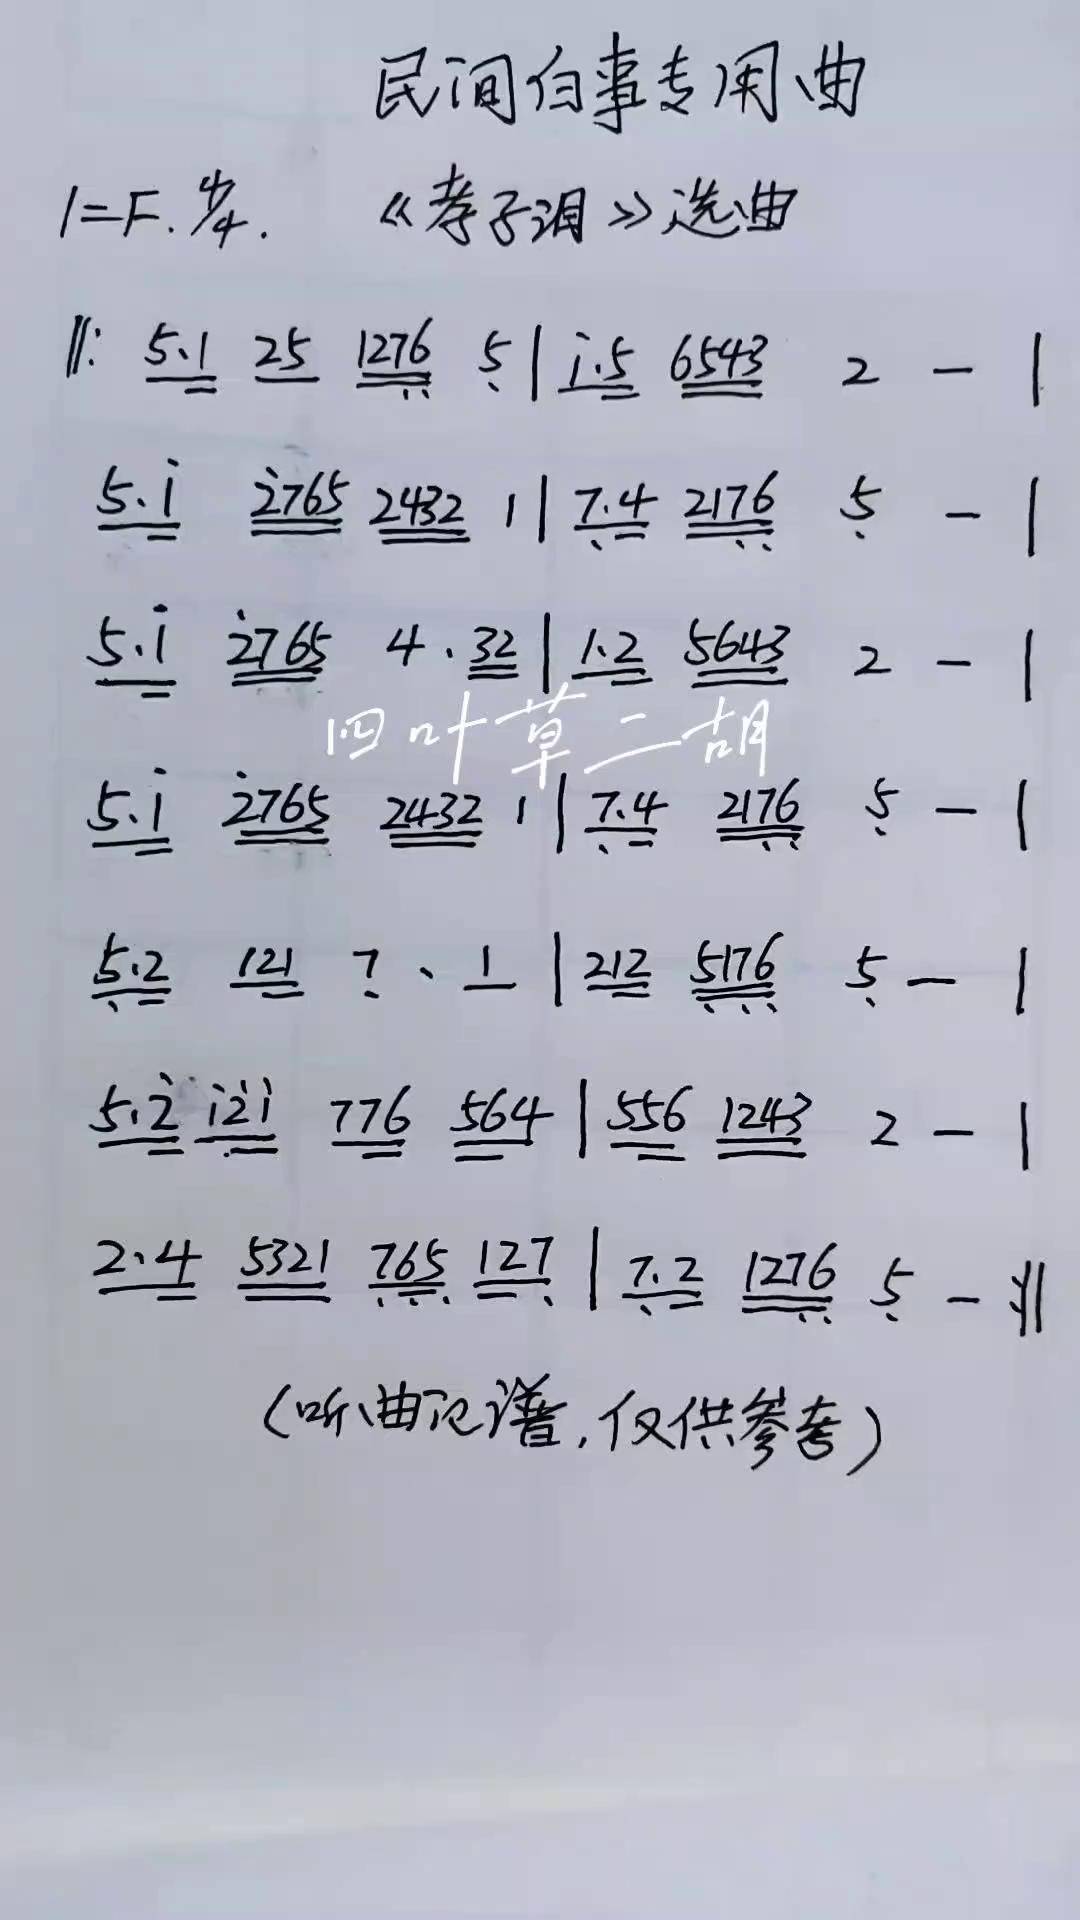 民间白事专用曲
1=F. 4/4.  《孝子泪》选曲
‖: 5.1 25 1276 5 | i.5 6543 2 - |
5.i 2765 2432 1 | 7.4 2176 5 - |
5.i 2765 4.32 | 1.2 5643 2 - |
四叶草二胡
5.i 2765 2432 1 | 7.4 2176 5 - |
5.2 121 7. 1 | 212 5176 5 - |
5.2 i2i 776 564 | 556 1243 2 - |
2.4 5321 765 127 | 7.2 1276 5 - :‖
(听曲记谱,仅供参考)